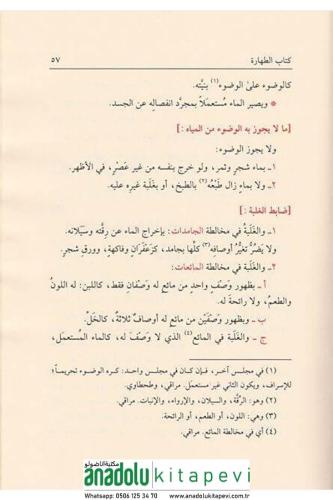 كتاب الطهارة ٥٧
كالوضوء على الوضوء(١) بنيَّته.
* ويصير الماء مُستعمَلاً بمجرَّد انفصاله عن الجسد.
[ما لا يجوز به الوضوء من المياه :]
ولا يجوز الوضوء:
١ـ بماء شجر وثمر، ولو خرج بنفسه من غير عَصْر، في الأظهر.
٢ـ ولا بماءٍ زال طَبْعُه(٢) بالطبخ، أو بغَلَبة غيره عليه.
[ضابط الغلبة :]
١ـ والغَلَبَة في مخالطة الجامدات: بإخراج الماء عن رقَّته وسَيَلانه.
ولا يَضُرُّ تغيُّر أوصافِه(٣) كلِّها بجامد، كزَعْفَران وفاكهةٍ، وورقِ شجرٍ.
٢ـ والغَلَبة في مخالطة المائعات:
أ ـ بظهور وَصْفٍ واحدٍ من مائع له وَصْفان فقط، كاللبن: له اللونُ
والطعمُ، ولا رائحةَ له.
ب ـ وبظهور وَصْفَيْن من مائع له أوصافٌ ثلاثةٌ، كالخَلِّ.
ج ـ والغَلَبة في المائع(٤) الذي لا وَصْفَ له، كالماء المُستعمَل،
(١) في مجلس آخر، فإن كان في مجلس واحد: كره الوضوء تحريماً؛
للإسراف، ويكون الثاني غير مستعمل. مراقي، وطحطاوي.
(٢) وهو: الرقَّة، والسيلان، والإرواء، والإنبات. مراقي.
(٣) وهي: اللون، أو الطعم، أو الرائحة.
(٤) أي في مخالطة المائع. مراقي.
مكتبة الأناضولو
anadolukitapevi
Whatsapp: 0506 125 34 70 www.anadolukitapevi.com